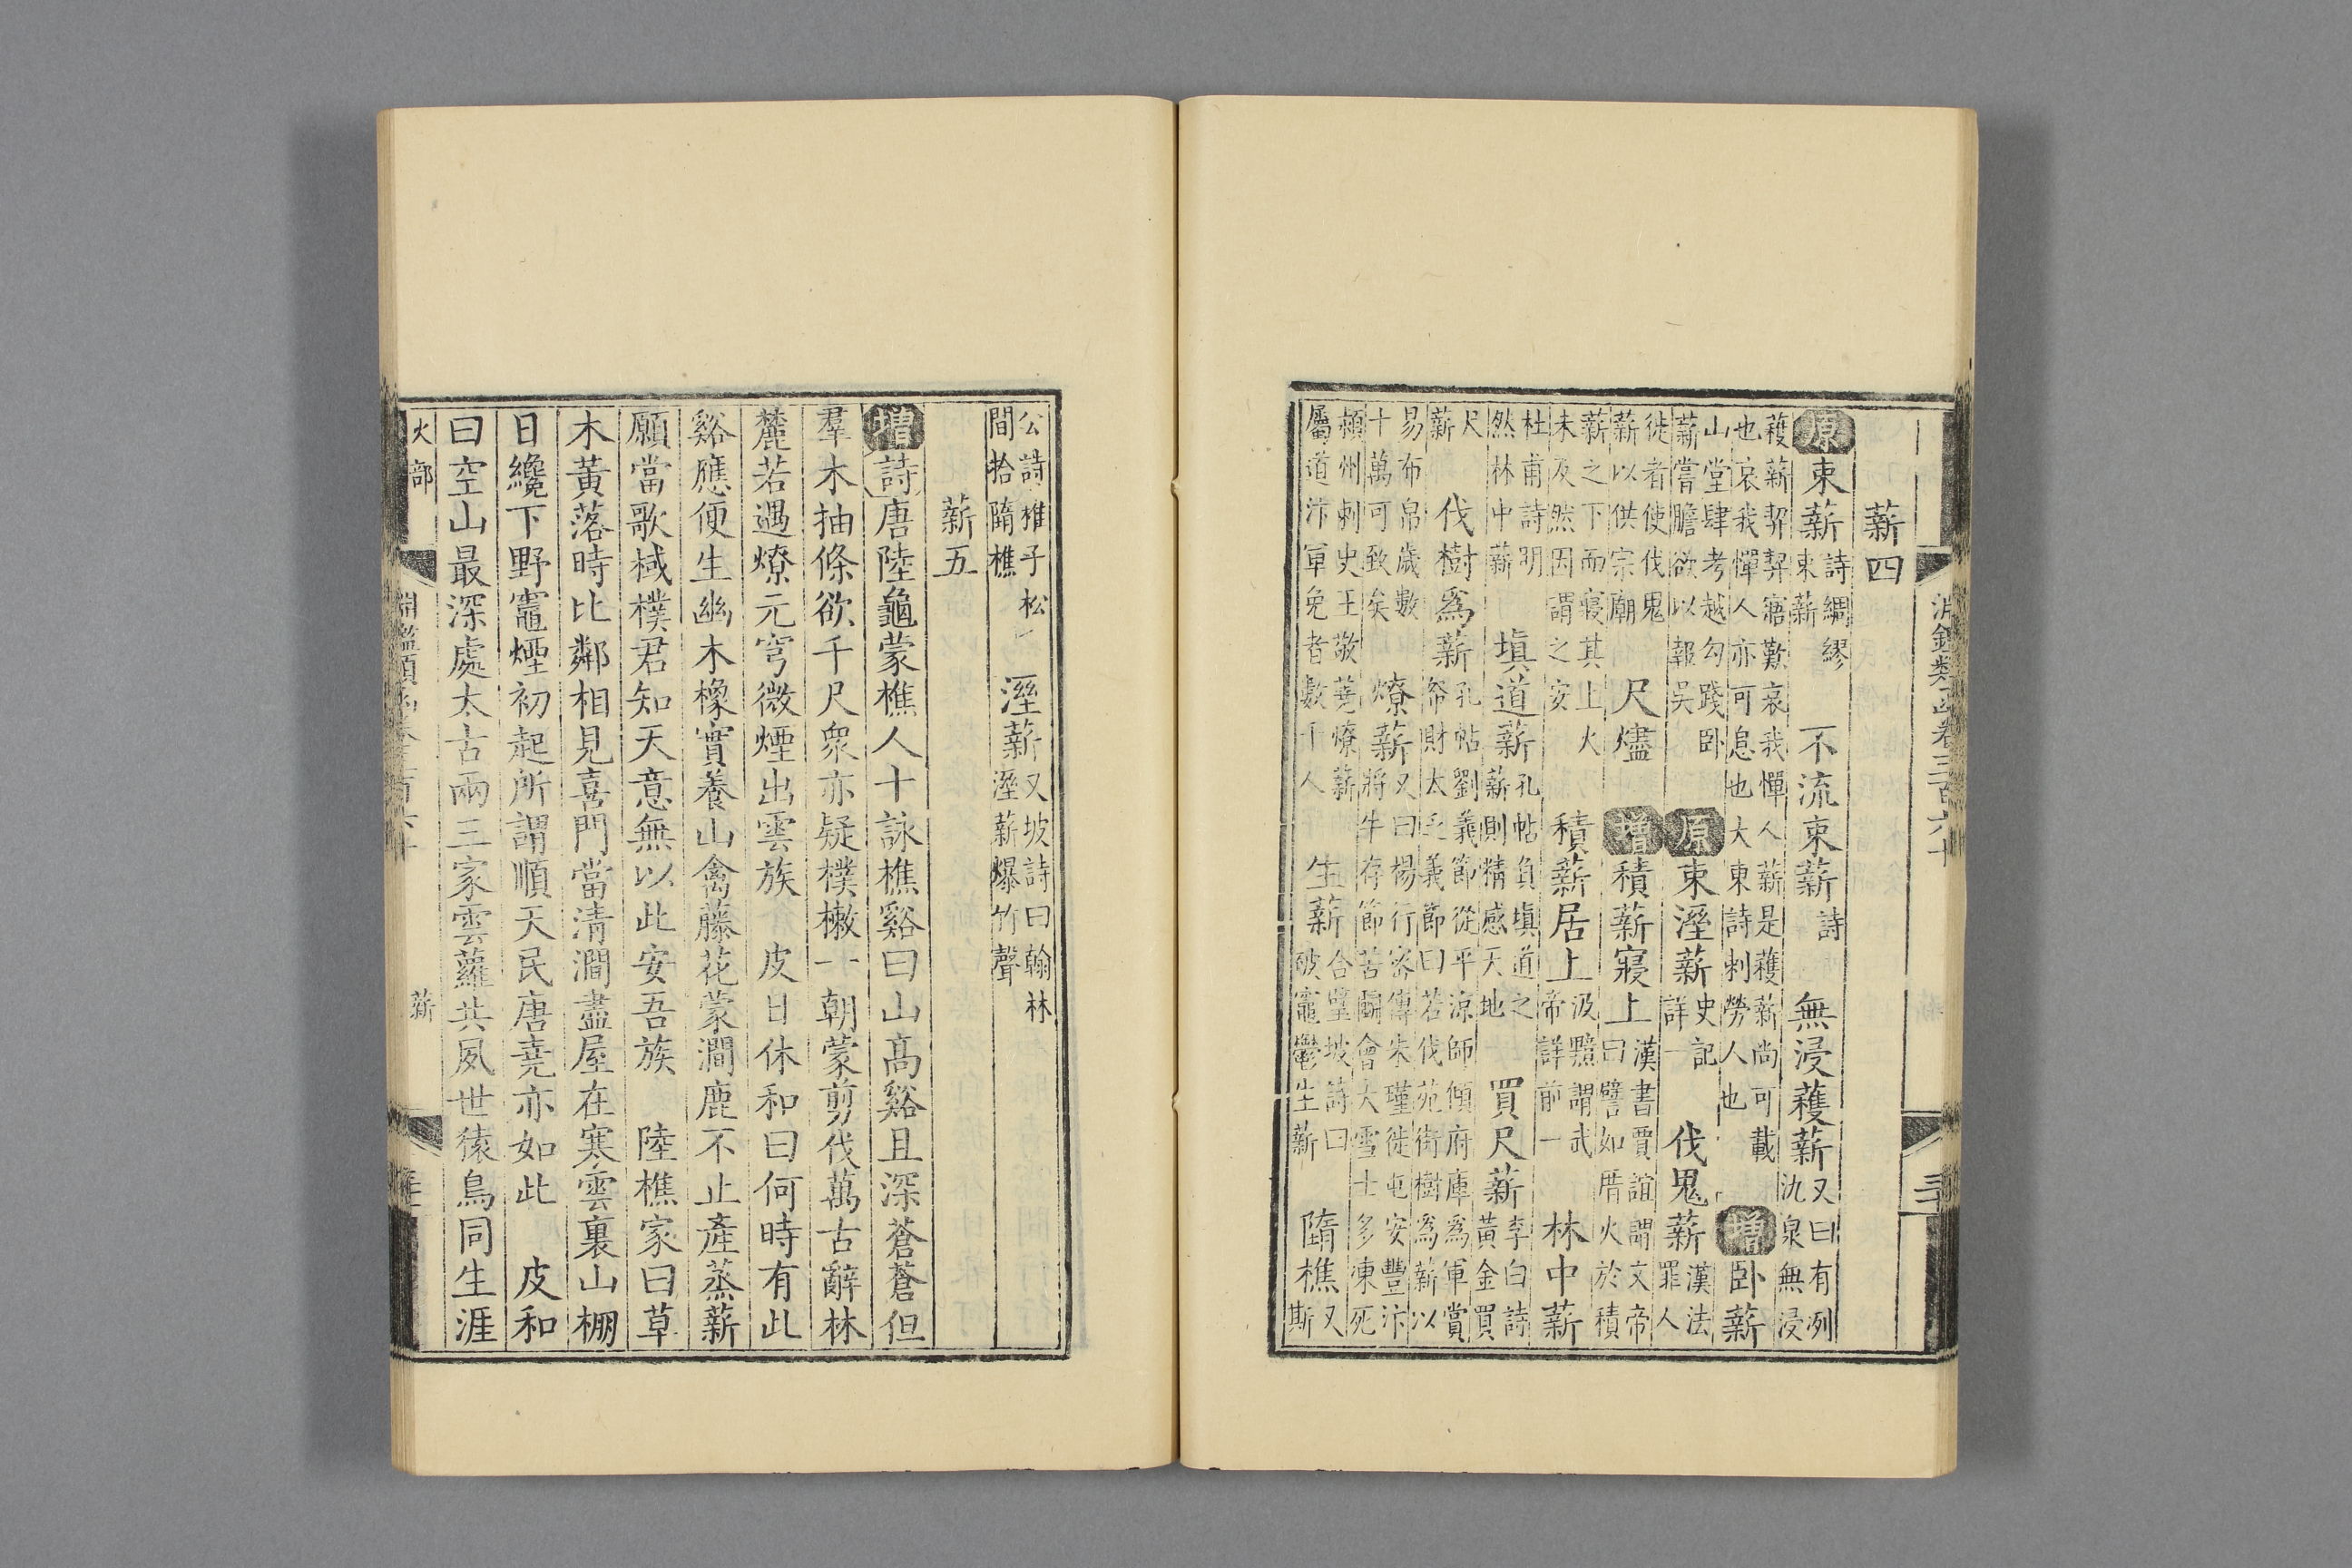 淵鑑類函卷三百六十
薪四
原束薪詩綢繆束薪 不流束薪詩 無浸穫薪又曰有冽氿泉無浸
穫薪契契寤歎哀我憚人薪是穫薪尚可載也哀我憚人亦可息也大東詩刺勞人也 增卧薪
山堂肆考越勾踐卧薪嘗膽欲以報吳 原束溼薪史記詳一 伐鬼薪漢法罪人
徙者使伐鬼薪以供宗廟 尺燼 增積薪寢上漢書賈誼謂文帝曰譬如厝火於積
薪之下而寢其上火未及然因謂之安 積薪居上汲黯謂武帝詳前一 林中薪
杜甫詩明然林中薪 塡道薪孔帖負塡道之薪則精感天地 買尺薪李白詩黃金買
尺薪 伐樹爲薪孔帖劉義節從平涼師傾府庫爲軍賞帑財太乏義節曰若伐苑街樹爲薪以
易布帛歲數十萬可致矣 燎薪又曰楊行密傳朱瑾徙屯安豐汴將牛存節苦鬭會大雪士多凍死
潁州刺史王敬蕘燎薪屬道汴軍免者數千人 生薪合璧坡詩曰破竈鬱生薪 隋樵又斯
公詩稚子松間拾隋樵 溼薪又坡詩曰翰林溼薪爆竹聲
薪五
增詩唐陸龜蒙樵人十詠樵谿曰山高谿且深蒼蒼但
羣木抽條欲千尺衆亦疑樸樕一朝蒙剪伐萬古辭林
麓若遇燎元穹微煙出雲族 皮日休和曰何時有此
谿應便生幽木橡實養山禽藤花蒙澗鹿不止產蒸薪
願當歌棫樸君知天意無以此安吾族 陸樵家曰草
木黃落時比鄰相見喜門當清澗盡屋在寒雲裏山棚
日纔下野竈煙初起所謂順天民唐堯亦如此 皮和
曰空山最深處太古兩三家雲蘿共夙世猿鳥同生涯
火部
淵鑑類函卷三百六十
薪